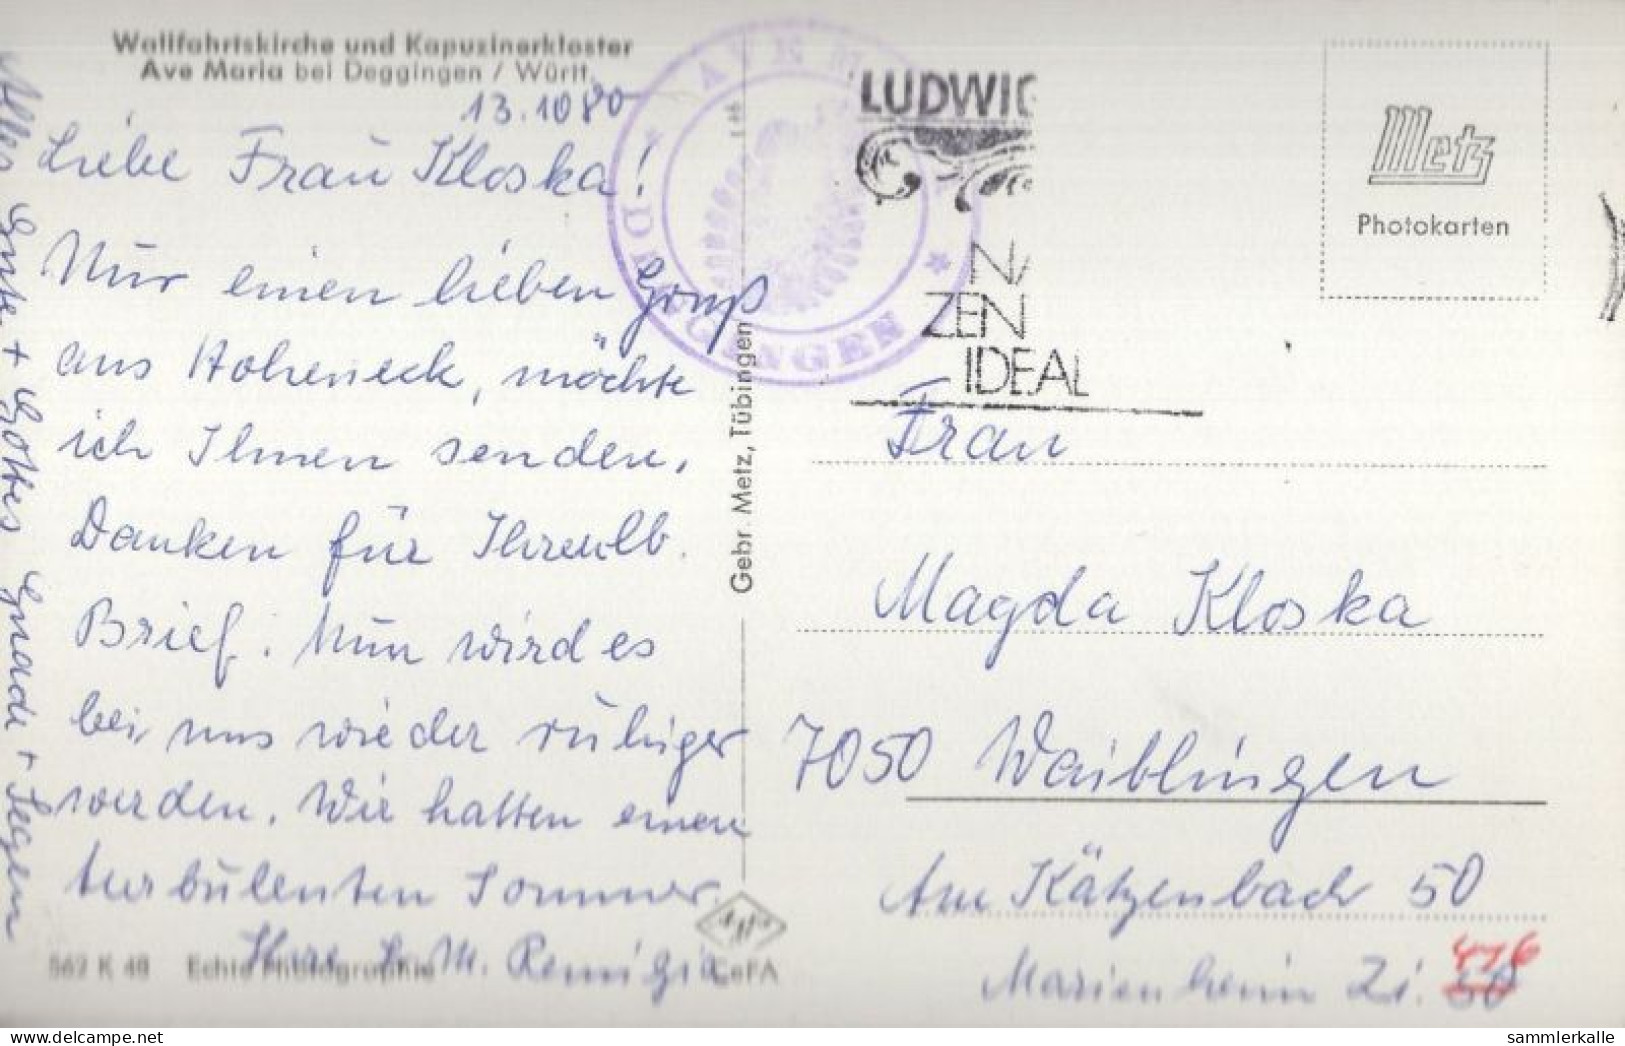 Wallfahrtskirche und Kapuzinerkloster
Ave Maria bei Deggingen / Württ.
13.10 80
Liebe Frau Kloska!
Nur einen lieben Gruß
aus Hoheneck, möchte
ich Ihnen senden.
Danken für Ihren lb.
Brief. Nun wird es
bei uns wieder ruhiger
werden. Wir hatten einen
turbulenten Sommer.
Ihre S. M. Remigia
Alles Gute + Gottes Gnade + Segen
562 K 48 Echte Photographie
CeFA
Gebr. Metz, Tübingen
AVE M
DEGGINGEN
LUDWIG
ZEN
IDEAL
Metz
Photokarten
Frau
Magda Kloska
7050 Waiblingen
Am Kätzenbach 50
Marienheim Zi. 50
sammlerkalle